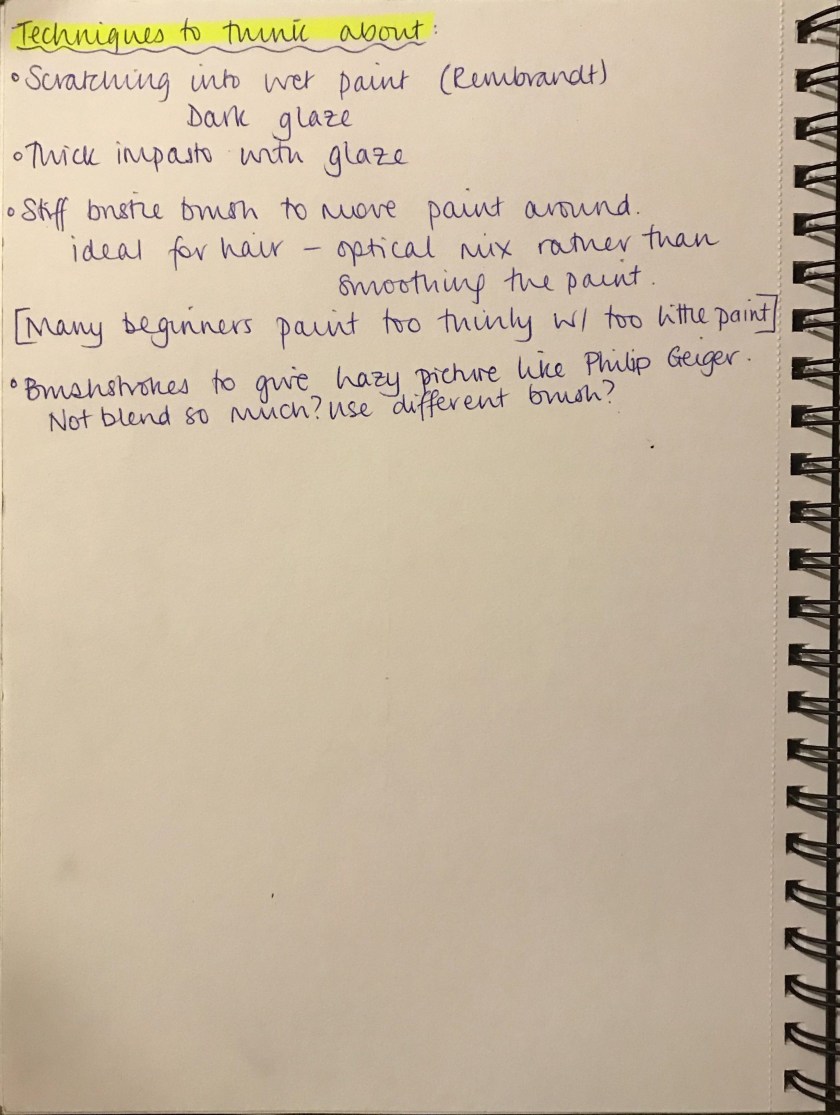 Techniques to think about:
• Scratching into wet paint (Rembrandt)
Dark glaze
• Thick impasto with glaze
• Stiff bristle brush to move paint around.
ideal for hair – optical mix rather than
smoothing the paint.
[Many beginners paint too thinly w/ too little paint]
• Brushstrokes to give hazy picture like Philip Geiger.
Not blend so much? use different brush?